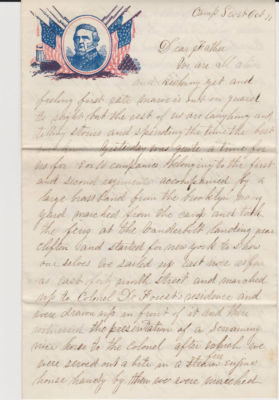 Camp Scott Oct 11
Dear Father
We are all alive
and kicking yet and
feeling first rate Marve is out on guard
to night but the rest of us are laughing and
telling stories and spending the time the best
we can Yesterday was quite a time for
us for 4 or 5 companies belonging to the first
and second regiments accompanied by a
large brass band from the brooklyn Navy
Yard marched from the camp and took
the ferry at the Vanderbilt landing near
Clifton and started for new york to show
our selves we sailed up east river as far
as east forty ninth street and marched
up to Colonel De Forest's residence and
were drawn up in front of it and there
witnessed the presentation of a
nice horse to the Colonel after which we
were served out a bite in a steam fire engine
house handy by then we were marched